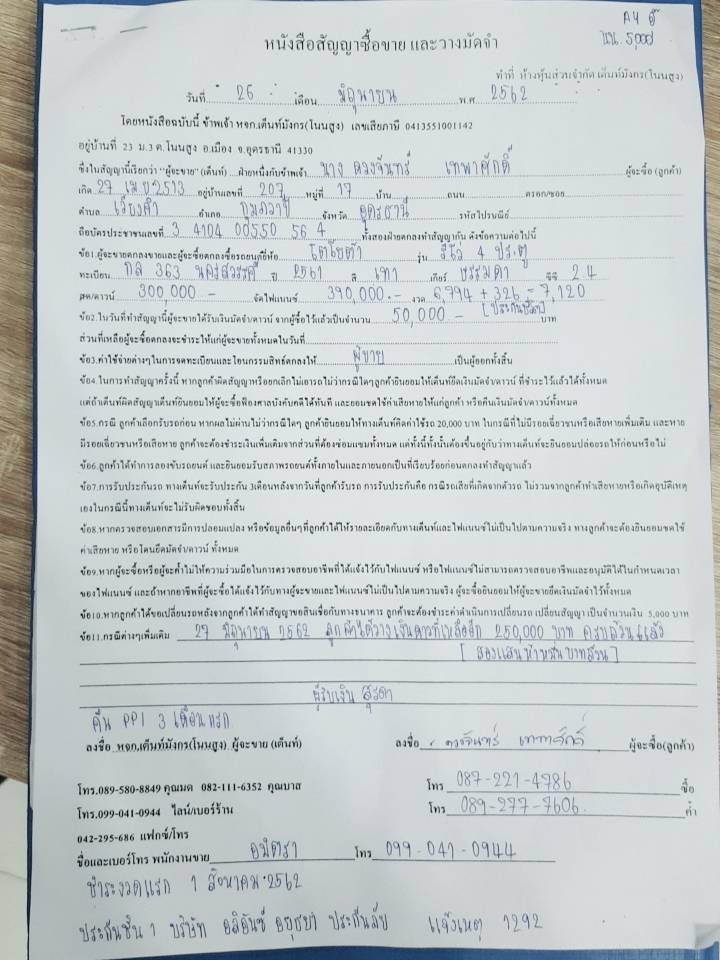 A4 
5,000
หนังสือสัญญาซื้อขาย และวางมัดจำ
ทำที่ ห้างหุ้นส่วนจำกัด เต็นท์มังกร(โนนสูง)
วันที่ 26 เดือน มิถุนายน พ.ศ 2562
โดยหนังสือฉบับนี้ ข้าพเจ้า หจก.เต็นท์มังกร(โนนสูง) เลขเสียภาษี 0413551001142
อยู่บ้านที่ 23 ม.3 ต.โนนสูง อ.เมือง จ.อุดรธานี 41330
ซึ่งในสัญญานี้เรียกว่า "ผู้จะขาย" (เต็นท์) ฝ่ายหนึ่งกับข้าพเจ้า นาง ดวงจันทร์ เทพาศักดิ์ ผู้จะซื้อ (ลูกค้า)
เกิด 27 เม.ย 2513 อยู่บ้านเลขที่ 207 หมู่ที่ 17 บ้าน ถนน ตรอก/ซอย
ตำบล เวียงคำ อำเภอ กุมภวาปี จังหวัด อุดรธานี รหัสไปรษณีย์
ถือบัตรประชาชนเลขที่ 3 4104 00550 56 4 ทั้งสองฝ่ายตกลงทำสัญญากัน ดังข้อความต่อไปนี้
ข้อ1.ผู้จะขายตกลงขายและผู้จะซื้อตกลงซื้อรถยนต์ยี่ห้อ โตโยต้า รุ่น รีโว่ 4 ประตู
ทะเบียน กล 363 นครสวรรค์ ปี 2561 สี เทา เกียร์ ธรรมดา ซีซี 2.4
สด/ดาวน์ 300,000 - จัดไฟแนนซ์ 390,000.- งวด 6,794 + 326 = 7,120
[ประกันชีวิต]
ข้อ2.ในวันที่ทำสัญญานี้ผู้จะขายได้รับเงินมัดจำ/ดาวน์ จากผู้ซื้อไว้แล้วเป็นจำนวน 50,000 - บาท
ส่วนที่เหลือผู้จะซื้อตกลงจะชำระให้แก่ผู้จะขายทั้งหมดในวันที่
ข้อ3.ค่าใช้จ่ายต่างๆในการจดทะเบียนและโอนกรรมสิทธ์ตกลงให้ ผู้ขาย เป็นผู้ออกทั้งสิ้น
ข้อ4.ในการทำสัญญาครั้งนี้ หากลูกค้าผิดสัญญาหรือยกเลิกไม่เอารถไม่ว่ากรณีใดๆลูกค้ายินยอมให้เต็นท์ยึดเงินมัดจำ/ดาวน์ ที่ชำระไว้แล้วได้ทั้งหมด
แต่ถ้าเต็นท์ผิดสัญญาเต็นท์ยินยอมให้ผู้จะซื้อฟ้องศาลบังคับคดีได้ทันที และยอมชดใช้ค่าเสียหายให้แก่ลูกค้า หรือคืนเงินมัดจำ/ดาวน์ทั้งหมด
ข้อ5.กรณี ลูกค้าเลือกรับรถก่อน หากผลไม่ผ่านไม่ว่ากรณีใดๆ ลูกค้ายินยอมให้ทางเต็นท์คิดค่าใช้รถ 20,000 บาท ในกรณีที่ไม่มีรอยเฉี่ยวชนหรือเสียหายเพิ่มเติม และหาย
มีรอยเฉี่ยวชนหรือเสียหาย ลูกค้าจะต้องชำระเงินเพิ่มเติมจากส่วนที่ต้องซ่อมแซมทั้งหมด แต่ทั้งนี้ทั้งนั้นต้องขึ้นอยู่กับว่าทางเต็นท์จะยินยอมปล่อยรถให้ก่อนหรือไม่
ข้อ6.ลูกค้าได้ทำการลองขับรถยนต์ และยินยอมรับสภาพรถยนต์ทั้งภายในและภายนอกเป็นที่เรียบร้อยก่อนตกลงทำสัญญาแล้ว
ข้อ7.การรับประกันรถ ทางเต็นท์จะรับประกัน 3เดือนหลังจากวันที่ลูกค้ารับรถ การรับประกันคือ กรณีรถเสียที่เกิดจากตัวรถ ไม่รวมจากลูกค้าทำเสียหายหรือเกิดอุบัติเหตุ
เองในกรณีนี้ทางเต็นท์จะไม่รับผิดชอบทั้งสิ้น
ข้อ8.หากตรวจสอบเอกสารมีการปลอมแปลง หรือข้อมูลอื่นๆที่ลูกค้าได้ให้รายละเอียดกับทางเต็นท์และไฟแนนซ์ไม่เป็นไปตามความจริง ทางลูกค้าจะต้องยินยอมชดใช้
ค่าเสียหาย หรือโดนยึดมัดจำ/ดาวน์ ทั้งหมด
ข้อ9.หากผู้จะซื้อหรือผู้จะค้ำไม่ให้ความร่วมมือในการตรวจสอบอาชีพที่ได้แจ้งไว้กับไฟแนนซ์ หรือไฟแนนซ์ไม่สามารถตรวจสอบอาชีพและอนุมัติได้ในกำหนดเวลา
ของไฟแนนซ์ และถ้าหากอาชีพที่ผู้จะซื้อได้แจ้งไว้กับทางผู้จะขายและไฟแนนซ์ไม่เป็นไปตามความจริง ผู้จะซื้อยินยอมให้ผู้จะขายยึดเงินมัดจำไว้ทั้งหมด
ข้อ10.หากลูกค้าได้ขอเปลี่ยนรถหลังจากลูกค้าได้ทำสัญญาขอสินเชื่อกับทางธนาคาร ลูกค้าจะต้องชำระค่าดำเนินการเปลี่ยนรถ เปลี่ยนสัญญา เป็นจำนวนเงิน 5,000 บาท
ข้อ11.กรณีต่างๆเพิ่มเติม 27 มิถุนายน 2562 ลูกค้าได้วางเงินดาวน์ที่เหลืออีก 250,000 บาท ครบถ้วนแล้ว
[สองแสนห้าหมื่นบาทถ้วน]
ผู้รับเงิน สุรดา
คืน PPI 3 เดือนแรก
ลงชื่อ หจก.เต็นท์มังกร(โนนสูง) ผู้จะขาย (เต็นท์) ลงชื่อ ดวงจันทร์ เทพาศักดิ์ ผู้จะซื้อ(ลูกค้า)
โทร.089-580-8849 คุณมด 082-111-6352 คุณบาส โทร 087-221-4786 ซื้อ
โทร.099-041-0944 ไลน์/เบอร์ร้าน โทร 089-277-7606 ค้ำ
042-295-686 แฟกซ์/โทร
ชื่อและเบอร์โทร พนักงานขาย อมิตรา โทร 099-041-0944
ชำระงวดแรก 1 สิงหาคม 2562
ประกันชั้น 1 บริษัท อลิอันซ์ อยุธยา ประกันภัย แจ้งเหตุ 1292